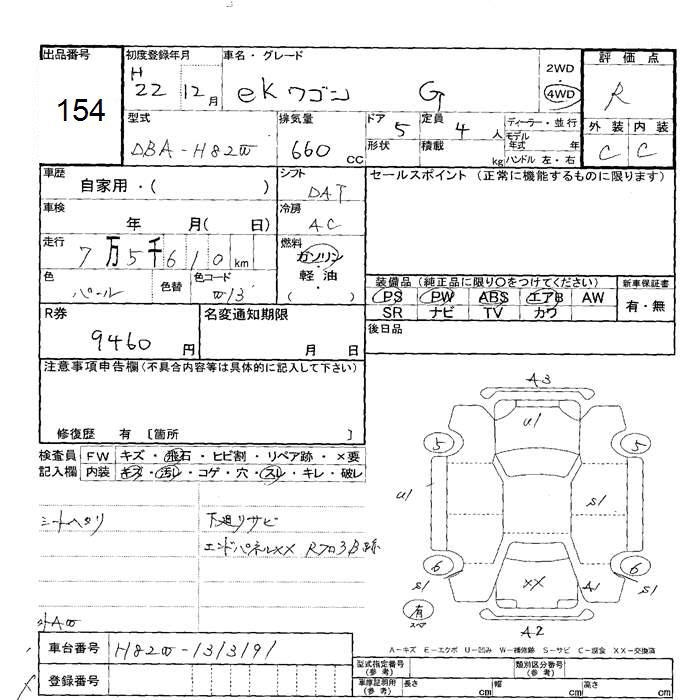 出品番号
154
初度登録年月
H
22 12月
車名・グレード
ekワゴン G
2WD
・
4WD
評価点
R
型式
DBA-H82W
排気量
660 CC
ドア 5
形状
定員 4 人
積載 kg
ディーラー・並行
モデル
年式 年
ハンドル 左・右
外装 内装
C C
車歴
自家用・( )
シフト
DAT
セールスポイント (正常に機能するものに限ります)
車検
年 月( 日)
冷房
AC
走行
7万5千610km
燃料
ガソリン
軽・油
( )
色
パール
色替
色コード
W13
装備品 (純正品に限り○をつけてください)
PS PW ABS エアB AW
SR ナビ TV カワ
新車保証書
有・無
R券
9460円
名変通知期限
月 日
後日品
注意事項申告欄(不具合内容等は具体的に記入して下さい)
修復歴 有 〔箇所 〕
検査員 FW キズ・飛石・ヒビ割・リペア跡・×要
記入欄 内装 キズ・汚レ・コゲ・穴・スレ・キレ・破レ
シートヘタリ
下廻りサビ
エンドパネルXX Rフロ3B跡
外AW
A3
U1
5 5
U1 S1
6 6
S1 XX A1 S1
有
スペア
A2
A-キズ E-エクボ U-凹み W-補修跡 S-サビ C-腐食 XX-交換済
車台番号 H82W-1313191
登録番号
型式指定番号
(参考)
類別区分番号
(参考)
車庫証明用
(参考)
長さ cm 幅 cm 高さ cm